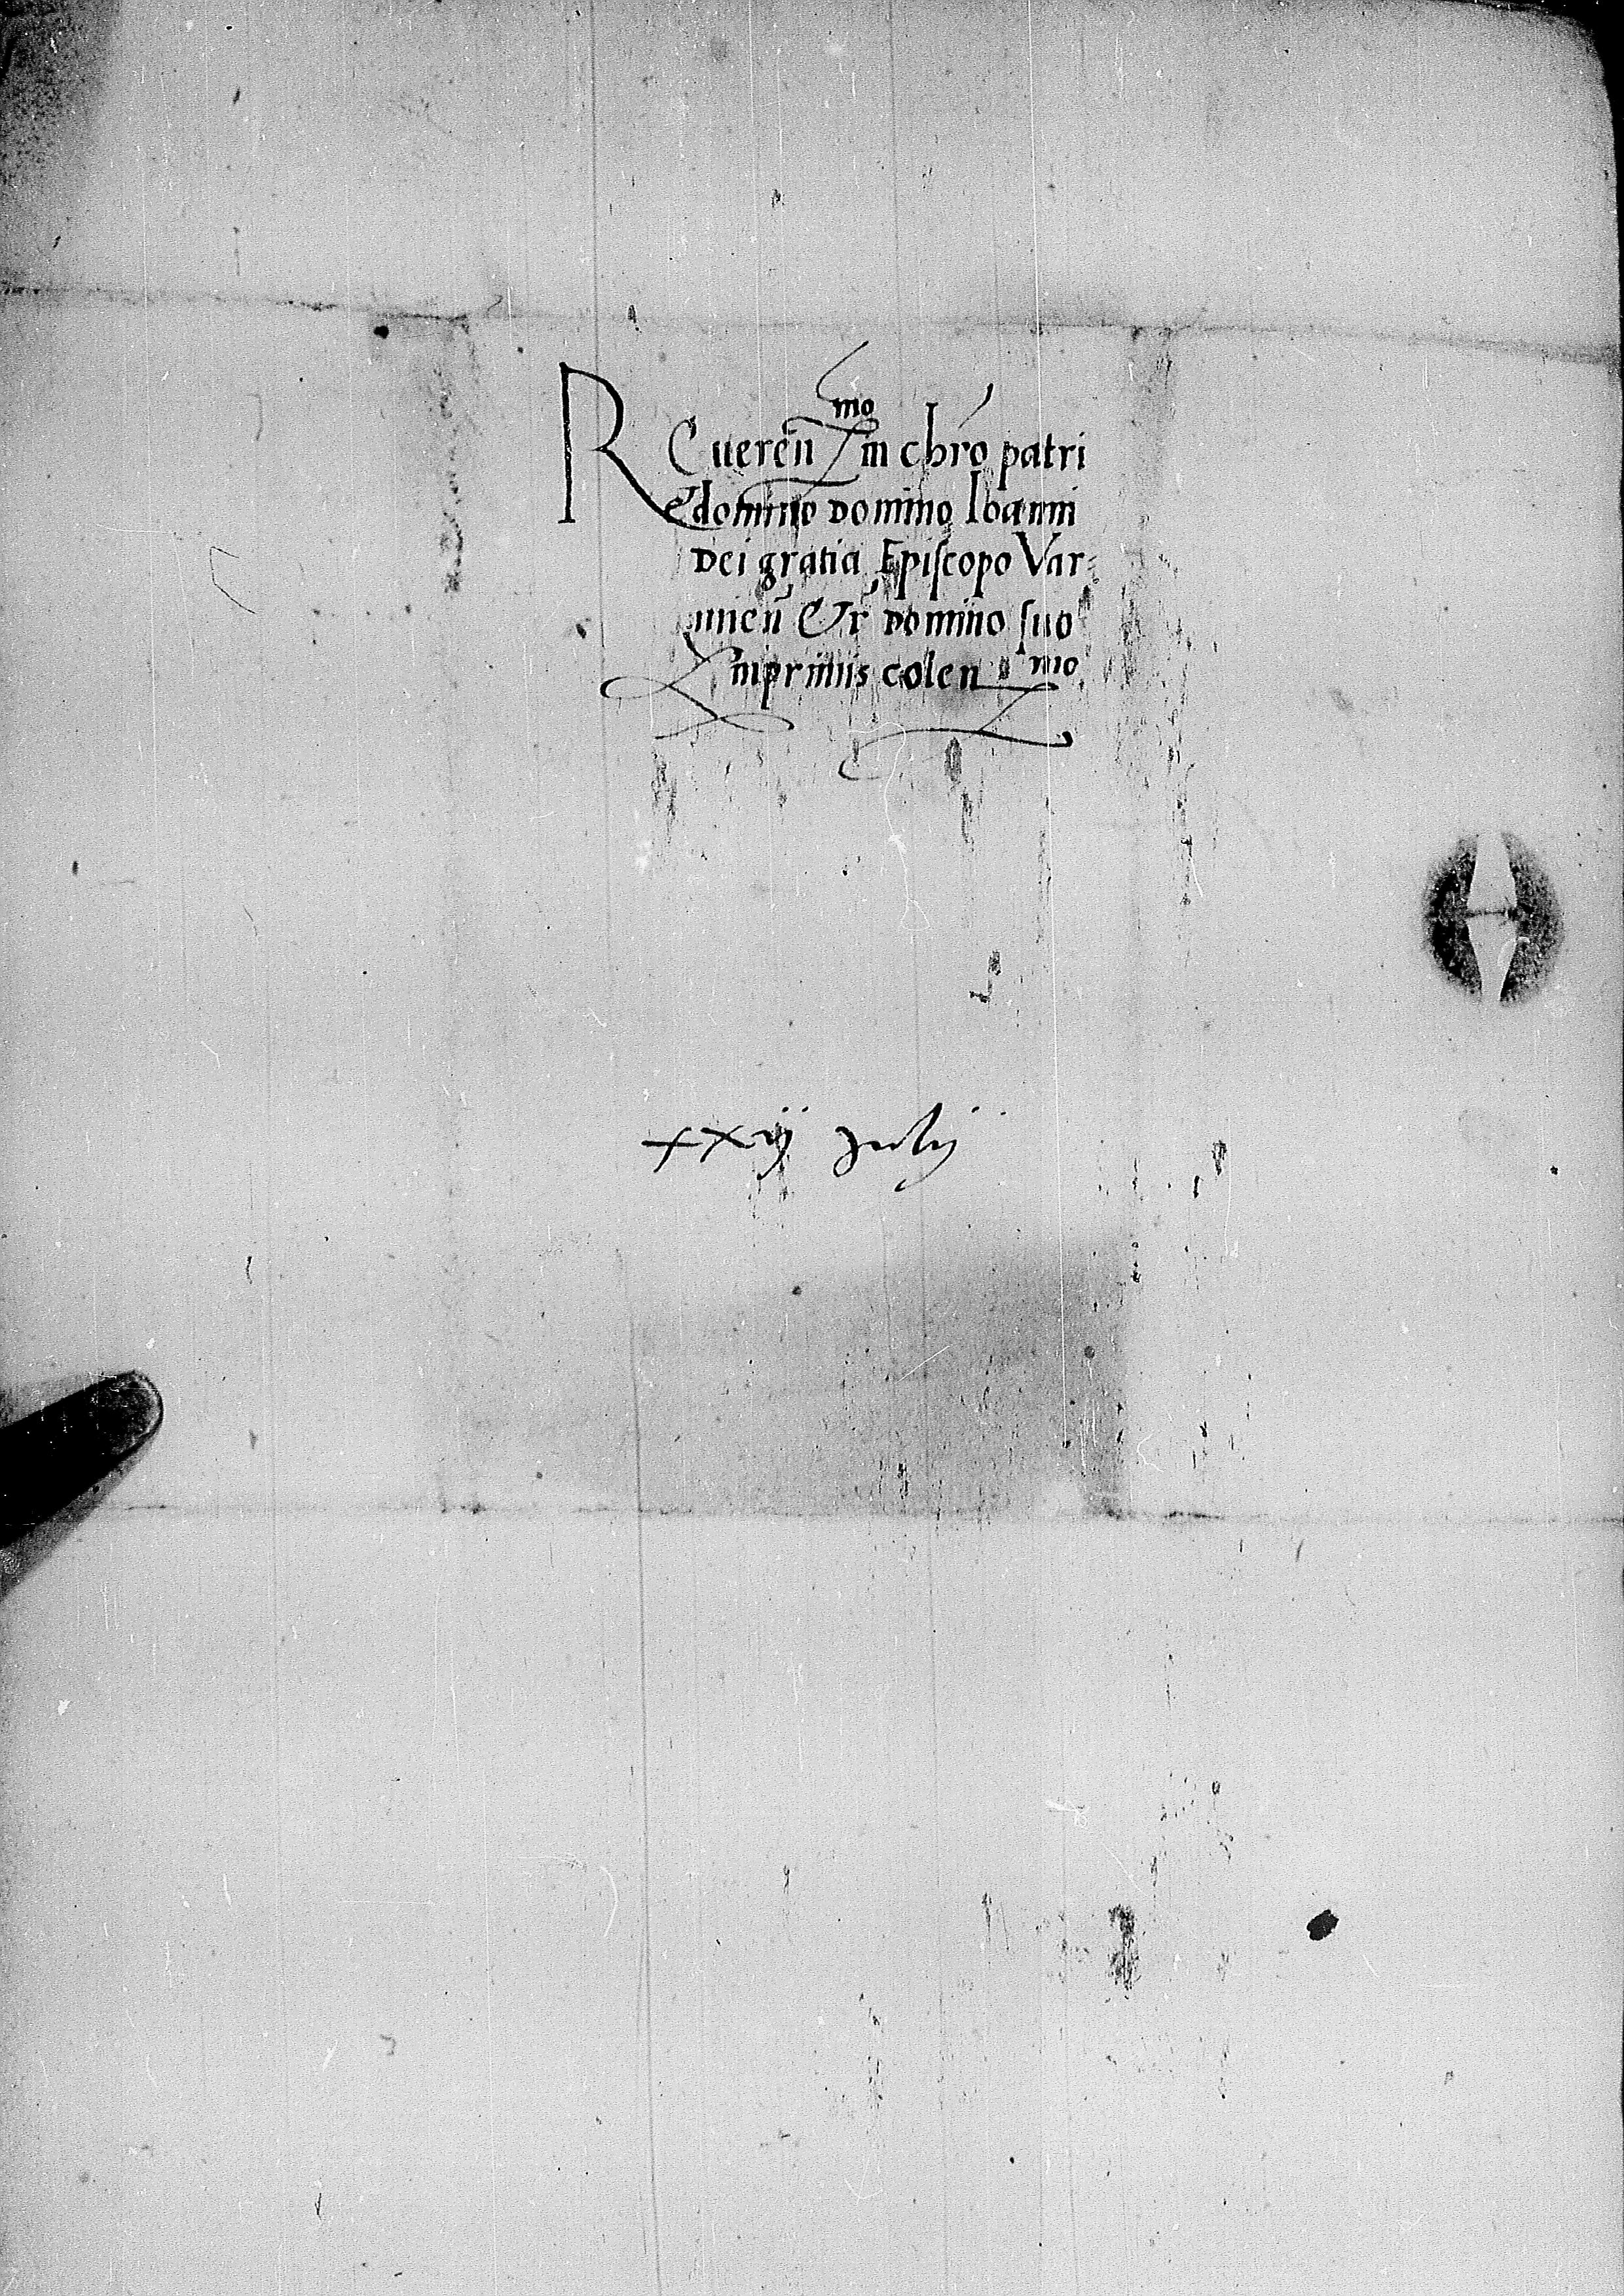 Reueren^mo in chro patri
& domino Domino Ioanni
Dei gratia Episcopo Var-
mien & r Domino suo
Imprimis colen^mo
xxij Julij